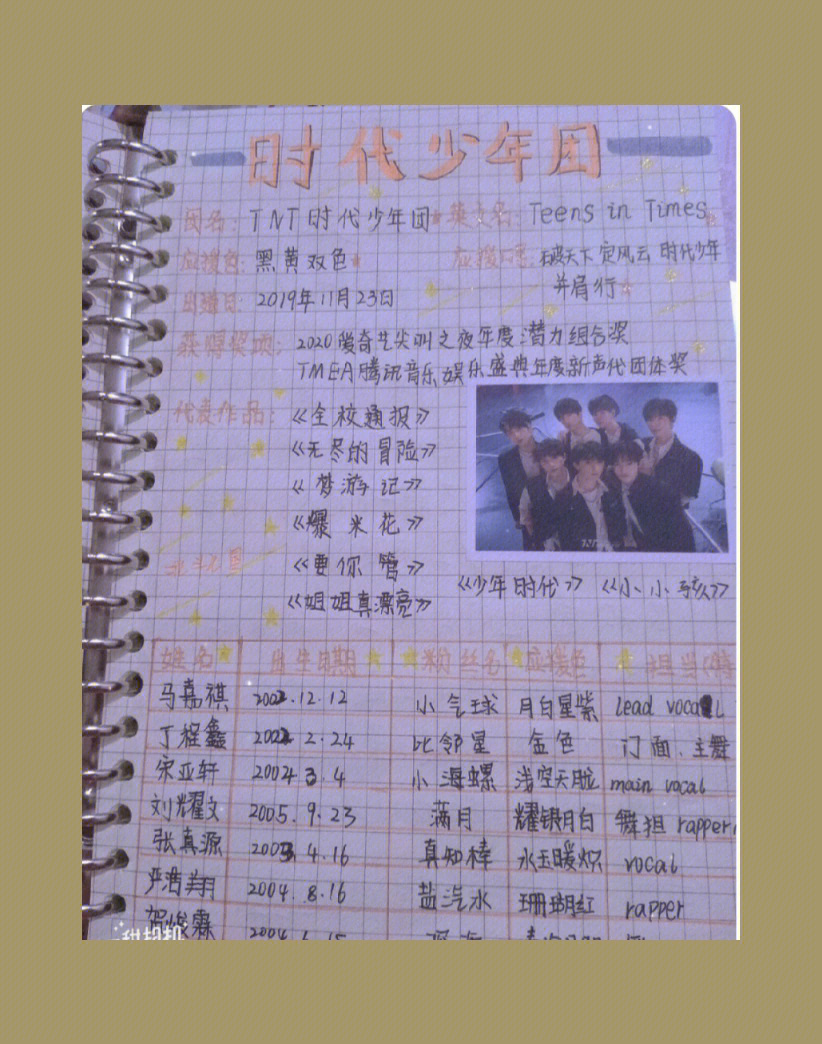 时代少年团
团名: TNT时代少年团 英文名: Teens in Times
应援色: 黑黄双色 应援口号: 破天下 定风云 时代少年
并肩行
出道日: 2019年11月23日
获得奖项: 2020爱奇艺尖叫之夜年度潜力组合奖
TMEA腾讯音乐娱乐盛典年度新声代团体奖
代表作品: 《全校通报》
《无尽的冒险》
《梦游记》
《爆米花》
《要你管》
《姐姐真漂亮》
《少年时代》 《小小孩》
姓名 出生日期 粉丝名 应援色 担当
马嘉祺 2002.12.12 小气球 月白星紫 lead vocal
丁程鑫 2002.2.24 比邻星 金色 门面、主舞
宋亚轩 2004.3.4 小海螺 浅空天胧 main vocal
刘耀文 2005.9.23 满月 耀银月白 舞担 rapper
张真源 2003.4.16 真知棒 水玉暖炽 vocal
严浩翔 2004.8.16 盐汽水 珊瑚红 rapper
贺峻霖